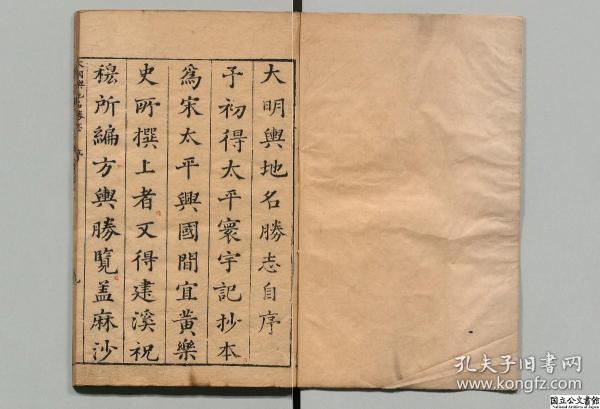 大明輿地名勝志自序
予初得太平寰宇記抄本
爲宋太平興國間宜黃樂
史所撰上者又得建溪祝
穆所編方輿勝覽盖麻沙
孔夫子旧書网
www.kongfz.com
国立公文書館
National Archives of Japan